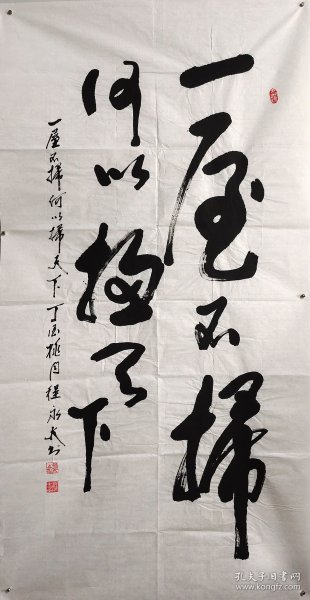 一屋不掃
何以掃天下
一屋不掃何以掃天下丁酉桃月程永武书
孔夫子旧书网